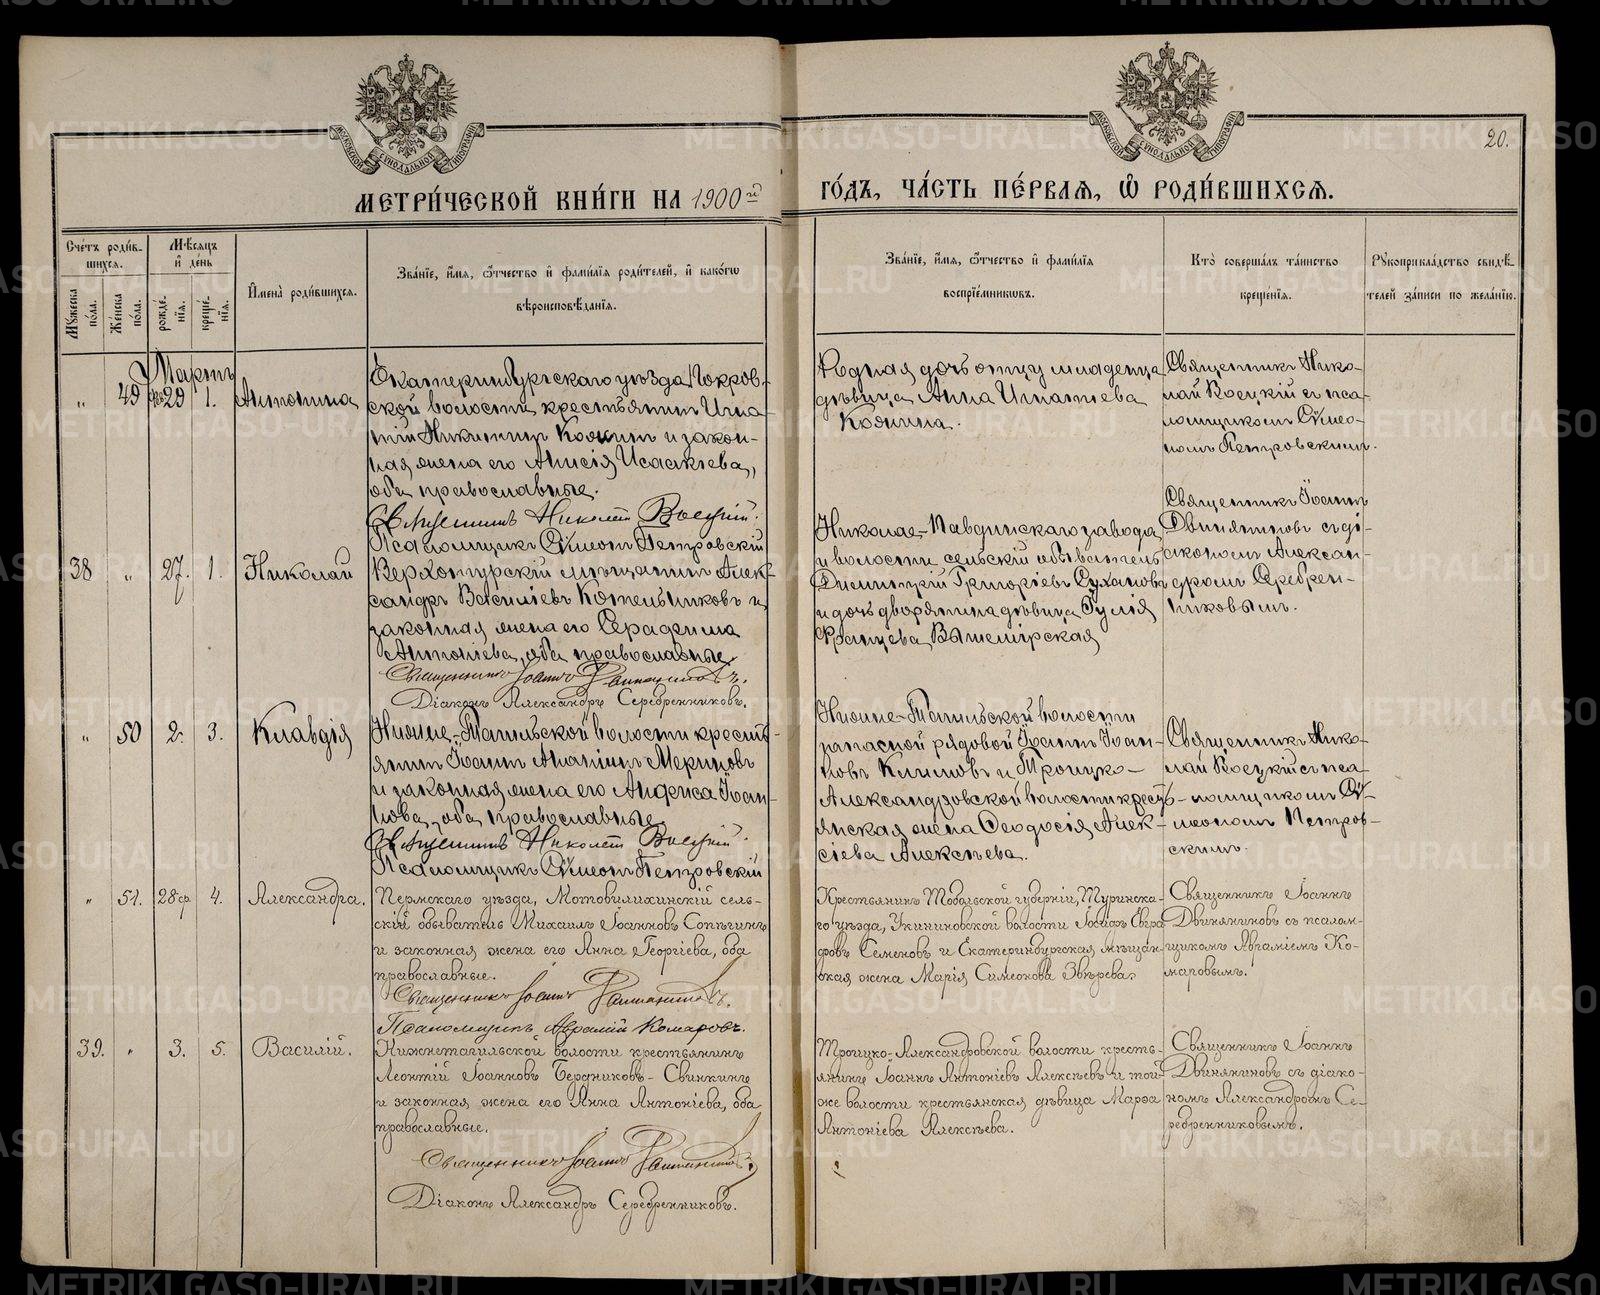 МЕТРИ́ЧЕСКОЙ КНИ́ГИ НА 1900й
ГО́ДЪ, ЧА́СТЬ ПЕ́РВАѦ, Ѿ РОДИ́ВШИХСѦ.
20.
Сче́тъ роди́в-
шихсѧ.
Мѣ́сѧцъ
и҆ де́нь
Мꙋ́жеска по́ла.
Же́нска по́ла.
рожде́-нїѧ.
креще́-нїѧ.
И҆мена̀ роди́вшихсѧ.
Зва́нїе, и҆́мѧ, ѻ҆́тчество и҆ фами́лїѧ роди́телей, и҆ како́гѡ
вѣроисповѣ́данїѧ.
Зва́нїе, и҆́мѧ, ѻ҆́тчество и҆ фами́лїѧ
воспрїе́мниковъ.
Кто̀ соверша́лъ та́инство
креще́нїѧ.
Рꙋкоприкла́дство свидѣ́-
телей за́писи по жела́нїю.
Мартъ
„ 49 29 1. Антонина
Екатеринбургскаго уѣзда Покров-
ской волости крестьянинъ Игна-
тій Никитинъ Коянинъ и закон-
ная жена его Анисія Исаакіева,
оба православные.
Священникъ Николай Воецкій.
Псаломщикъ Сѵмеонъ Петровскій
Родная дочь отцу младенца
дѣвица Анна Игнатіева
Коянина.
Священникъ Нико-
лай Воецкій съ пса-
ломщикомъ Сѵмео-
номъ Петровскимъ.
38 „ 27. 1. Николай
Верхотурскій мѣщанинъ Алек-
сандръ Васильевъ Котельниковъ и
законная жена его Серафима
Антоніева, оба православные.
Священникъ Іоаннъ Двиняниновъ.
Діаконъ Александръ Серебренниковъ.
Николае-Павдинскаго завода
и волости сельскій обыватель
Димитрій Григоріевъ Сухановъ
и дочь дворянина дѣвица Сулія
Францева Вышемірская
Священникъ Іоаннъ
Двиняниновъ съ ді-
акономъ Алексан-
дромъ Серебрен-
никовымъ.
„ 50 2. 3. Клавдія
Нижне-Тагильской волости кресть-
янинъ Іоаннъ Ананіинъ Мериновъ
и законная жена его Анфиса Іоан-
нова, оба православные.
Священникъ Николай Воецкій.
Псаломщикъ Сѵмеонъ Петровскій
Нижне-Тагильской волости
запасной рядовой Іоаннъ Іоан-
новъ Климовъ и Троицко-
Александровской волости кресть-
янская жена Ѳеодосія Алек-
сіева Алексѣева.
Священникъ Нико-
лай Воецкій съ пса-
ломщикомъ Сѵ-
меономъ Петров-
скимъ.
„ 51. 28 ф. 4. Александра.
Пермскаго уѣзда, Мотовилихинскій сель-
скій обыватель Михаилъ Іоанновъ Сопѣгинъ
и законная жена его Анна Георгіева, оба
православные.
Священникъ Іоаннъ Двиняниновъ.
Псаломщикъ Авраамій Комаровъ.
Крестьянинъ Тобольской губерніи, Туринска-
го уѣзда, Куминовской волости Іосифъ Евгра-
фовъ Семеновъ и Екатеринбургская мѣщан-
ская жена Марія Симеонова Звѣрева.
Священникъ Іоаннъ
Двиняниновъ съ псалом-
щикомъ Авраміемъ Ко-
маровымъ.
39. „ 3. 5. Василій.
Нижнетагильской волости крестьянинъ
Леонтій Іоанновъ Бердниковъ-Свинкинъ
и законная жена его Анна Антоніева, оба
православные.
Священникъ Іоаннъ Двиняниновъ.
Діаконъ Александръ Серебренниковъ.
Троицко-Александровской волости кресть-
янинъ Іоаннъ Антоніевъ Алексѣевъ и той-
же волости крестьянская дѣвица Марѳа
Антоніева Алексѣева.
Священникъ Іоаннъ
Двиняниновъ съ діако-
номъ Александромъ Се-
ребренниковымъ.
METRIKI.GASO-URAL.RU